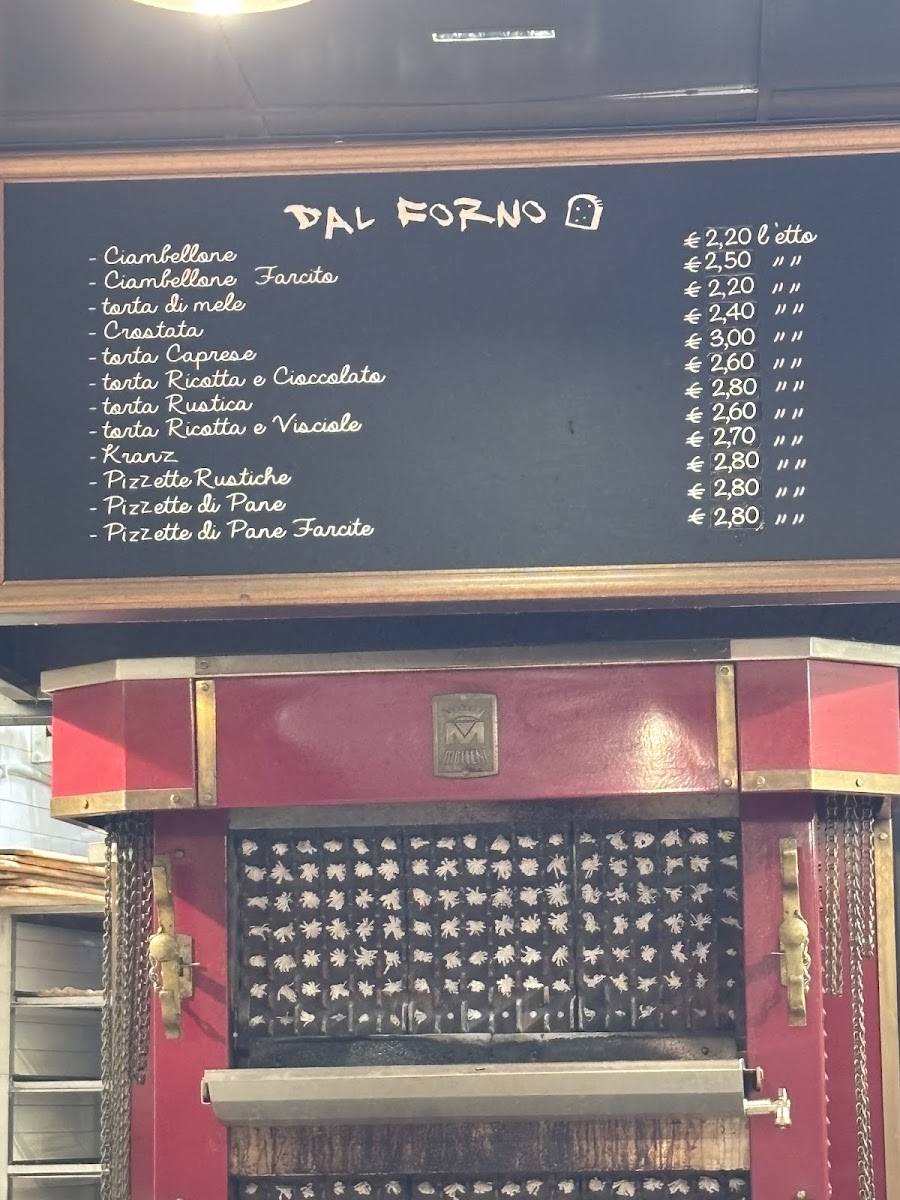 DAL FORNO
- Ciambellone € 2,20 l'etto
- Ciambellone Farcito € 2,50 " "
- torta di mele € 2,20 " "
- Crostata € 2,40 " "
- torta Caprese € 3,00 " "
- torta Ricotta e Cioccolato € 2,60 " "
- torta Rustica € 2,80 " "
- torta Ricotta e Visciole € 2,60 " "
- Kranz € 2,70 " "
- Pizzette Rustiche € 2,80 " "
- Pizzette di Pane € 2,80 " "
- Pizzette di Pane Farcite € 2,80 " "
M